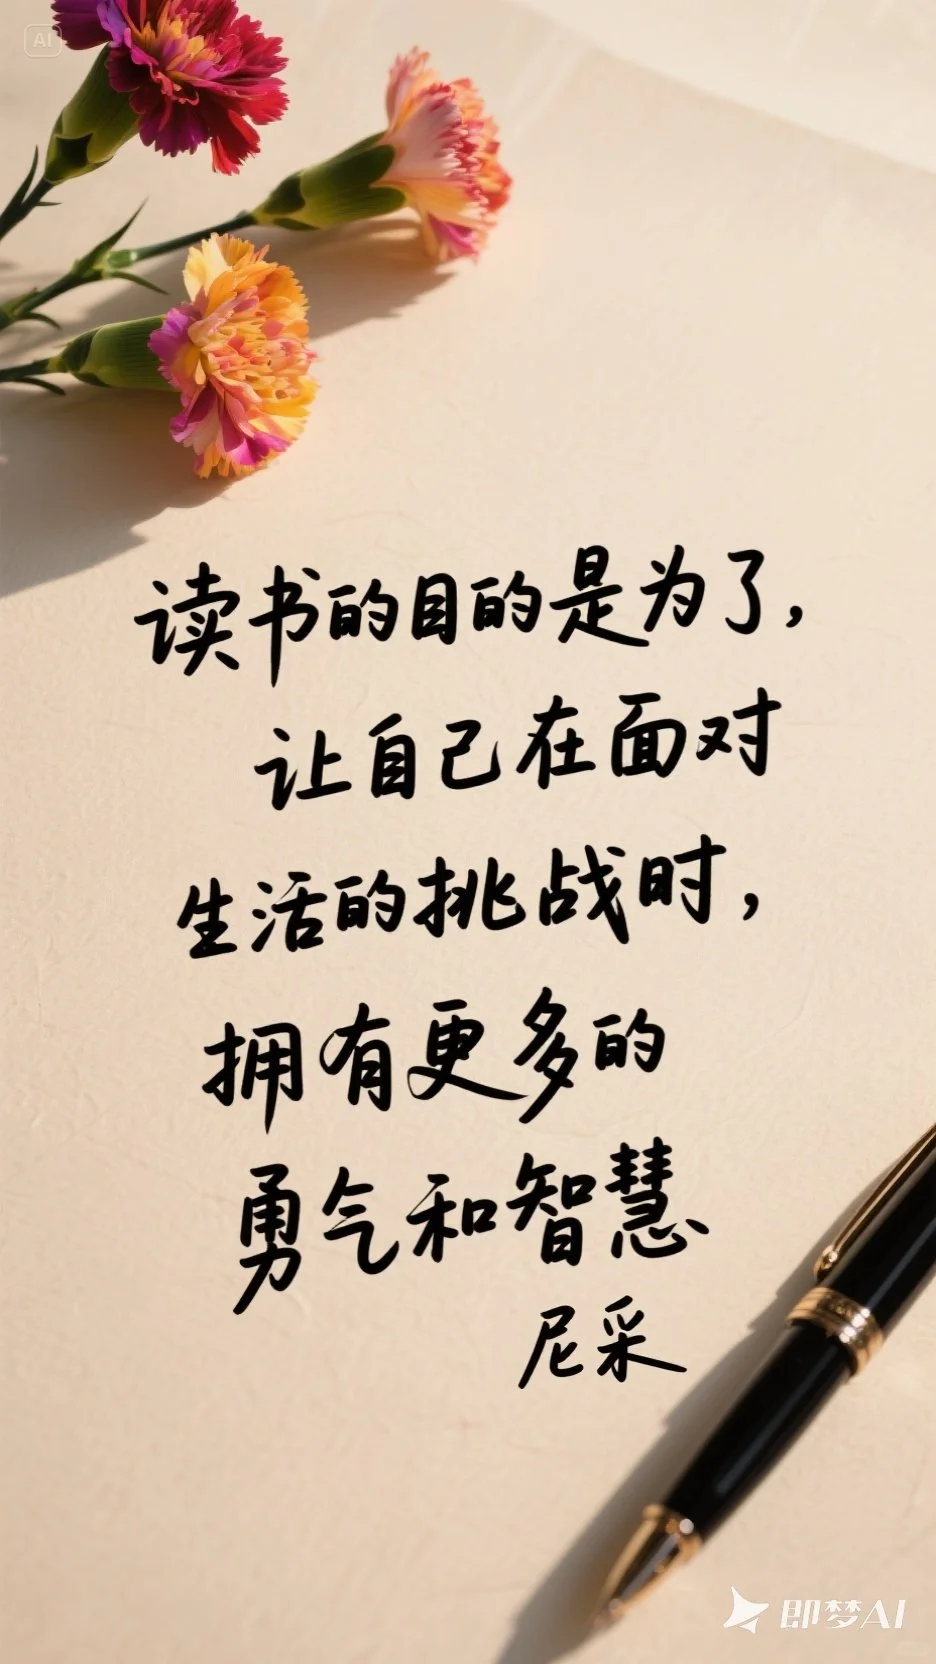 AI
读书的目的是为了，
让自己在面对
生活的挑战时，
拥有更多的
勇气和智慧
尼采
即梦AI